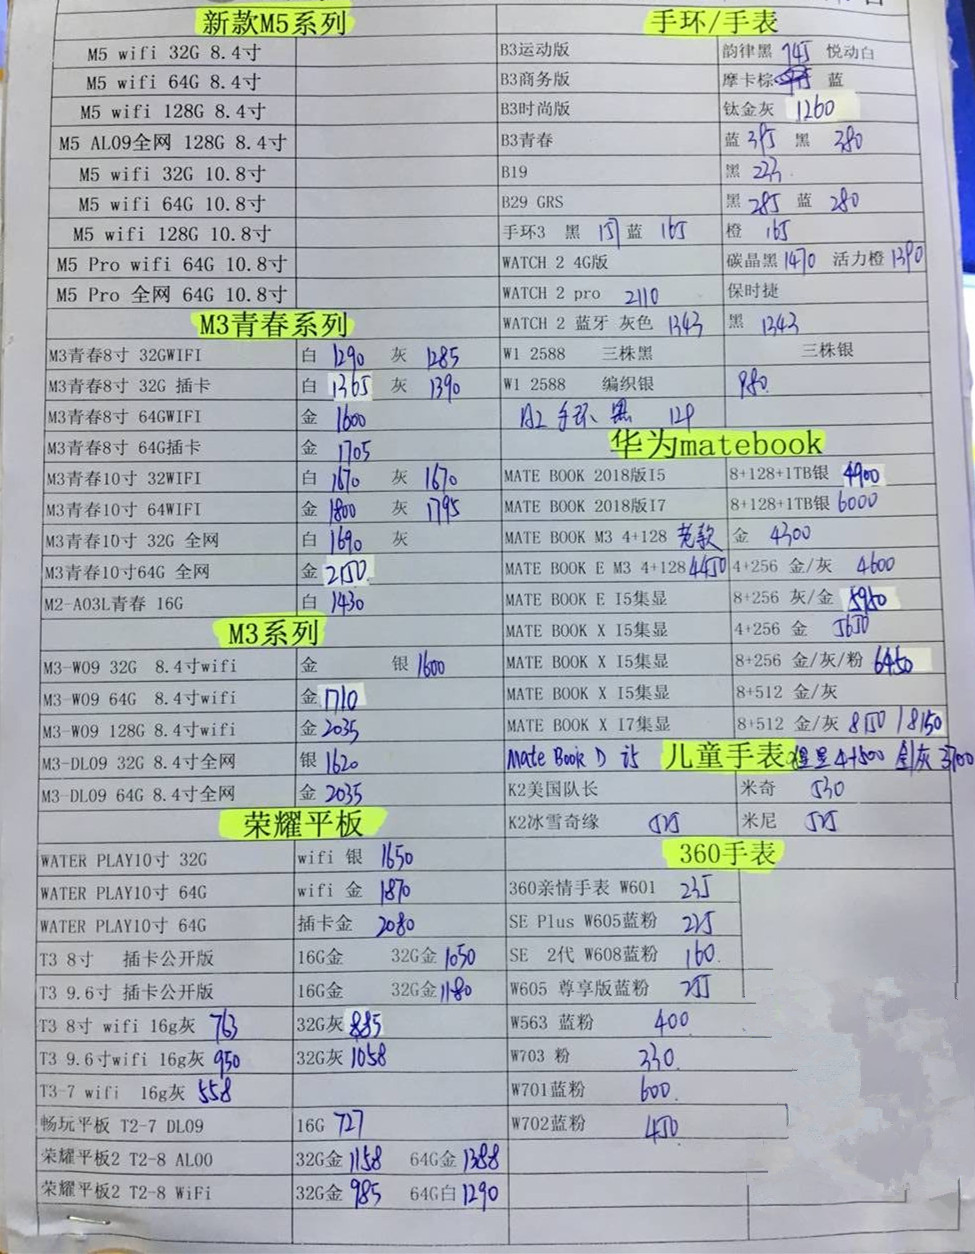 新款M5系列
M5 wifi 32G 8.4寸
M5 wifi 64G 8.4寸
M5 wifi 128G 8.4寸
M5 AL09全网 128G 8.4寸
M5 wifi 32G 10.8寸
M5 wifi 64G 10.8寸
M5 wifi 128G 10.8寸
M5 Pro wifi 64G 10.8寸
M5 Pro 全网 64G 10.8寸
M3青春系列
M3青春8寸 32GWIFI 白 1290 灰 1285
M3青春8寸 32G 插卡 白 1365 灰 1390
M3青春8寸 64GWIFI 金 1600
M3青春8寸 64G插卡 金 1705
M3青春10寸 32WIFI 白 1670 灰 1670
M3青春10寸 64WIFI 金 1800 灰 1795
M3青春10寸 32G 全网 白 1690 灰
M3青春10寸64G 全网 金 2150
M2-A03L青春 16G 白 1430
M3系列
M3-W09 32G 8.4寸wifi 金 银 1600
M3-W09 64G 8.4寸wifi 金 1710
M3-W09 128G 8.4寸wifi 金 2035
M3-DL09 32G 8.4寸全网 银 1620
M3-DL09 64G 8.4寸全网 金 2035
荣耀平板
WATER PLAY10寸 32G wifi 银 1650
WATER PLAY10寸 64G wifi 金 1870
WATER PLAY10寸 64G 插卡金 2080
T3 8寸 插卡公开版 16G金 32G金 1050
T3 9.6寸 插卡公开版 16G金 32G金 1180
T3 8寸 wifi 16g灰 763 32G灰 885
T3 9.6寸wifi 16g灰 950 32G灰 1058
T3-7 wifi 16g灰 558
畅玩平板 T2-7 DL09 16G 727
荣耀平板2 T2-8 AL00 32G金 1158 64G金 1388
荣耀平板2 T2-8 WiFi 32G金 985 64G白 1290
手环/手表
B3运动版 韵律黑 745 悦动白
B3商务版 摩卡棕 蓝
B3时尚版 钛金灰 1260
B3青春 蓝 395 黑 380
B19 黑 223
B29 GRS 黑 285 蓝 280
手环3 黑 151 蓝 165 橙 165
WATCH 2 4G版 碳晶黑 1470 活力橙 1390
WATCH 2 pro 2110 保时捷
WATCH 2 蓝牙 灰色 1343 黑 1343
W1 2588 三株黑 三株银
W1 2588 编织银 980
A2 手环 黑 129
华为matebook
MATE BOOK 2018版I5 8+128+1TB银 4900
MATE BOOK 2018版I7 8+128+1TB银 6000
MATE BOOK M3 4+128 老款 金 4300
MATE BOOK E M3 4+128 4450 4+256 金/灰 4600
MATE BOOK E I5集显 8+256 灰/金 5950
MATE BOOK X I5集显 4+256 金 5650
MATE BOOK X I5集显 8+256 金/灰/粉 6450
MATE BOOK X I5集显 8+512 金/灰
MATE BOOK X I7集显 8+512 金/灰 8150 / 8150
Mate Book D i5 4+500 金/灰 3700
儿童手表
K2美国队长 米奇 530
K2冰雪奇缘 525 米尼 525
360手表
360亲情手表 W601 235
SE Plus W605蓝粉 225
SE 2代 W608蓝粉 160
W605 尊享版蓝粉 255
W563 蓝粉 400
W703 粉 330
W701蓝粉 600
W702蓝粉 450